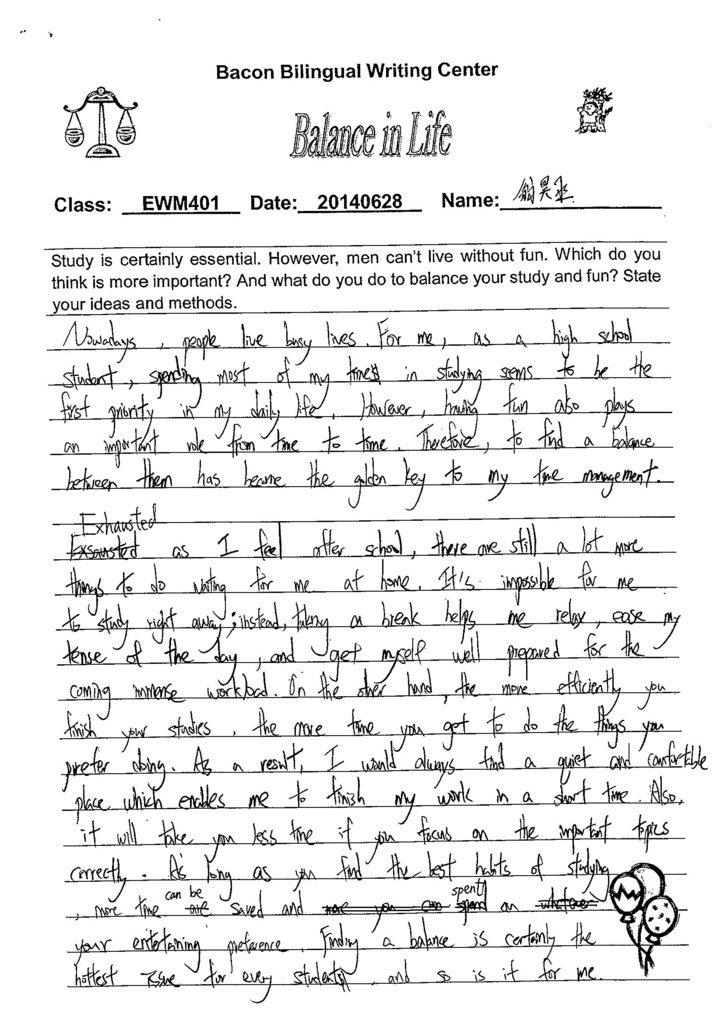 Bacon Bilingual Writing Center
Balance in Life
Class: EWM401 Date: 20140628 Name: 翁昊丞
Study is certainly essential. However, men can't live without fun. Which do you
think is more important? And what do you do to balance your study and fun? State
your ideas and methods.
Nowadays, people live busy lives. For me, as a high school
student, spending most of my time in studying seems to be the
first priority in my daily life. However, having fun also plays
an important role from time to time. Therefore, to find a balance
between them has became the golden key to my time management.
Exhausted
Exsausted as I feel after school, there are still a lot more
things to do waiting for me at home. It's impossible for me
to study right away; instead, taking a break helps me relax, ease my
tense of the day, and get myself well prepared for the
coming immense workload. On the other hand, the more efficiently you
finish your studies, the more time you get to do the things you
prefer doing. As a result, I would always find a quiet and comfortable
place which enables me to finish my work in a short time. Also,
it will take you less time if you focus on the important topics
correctly. As long as you find the best habits of studying
, more time can be are saved and more you can spend spent on whatever
your entertaining preference. Finding a balance is certainly the
hottest issue for every student, and so is it for me.